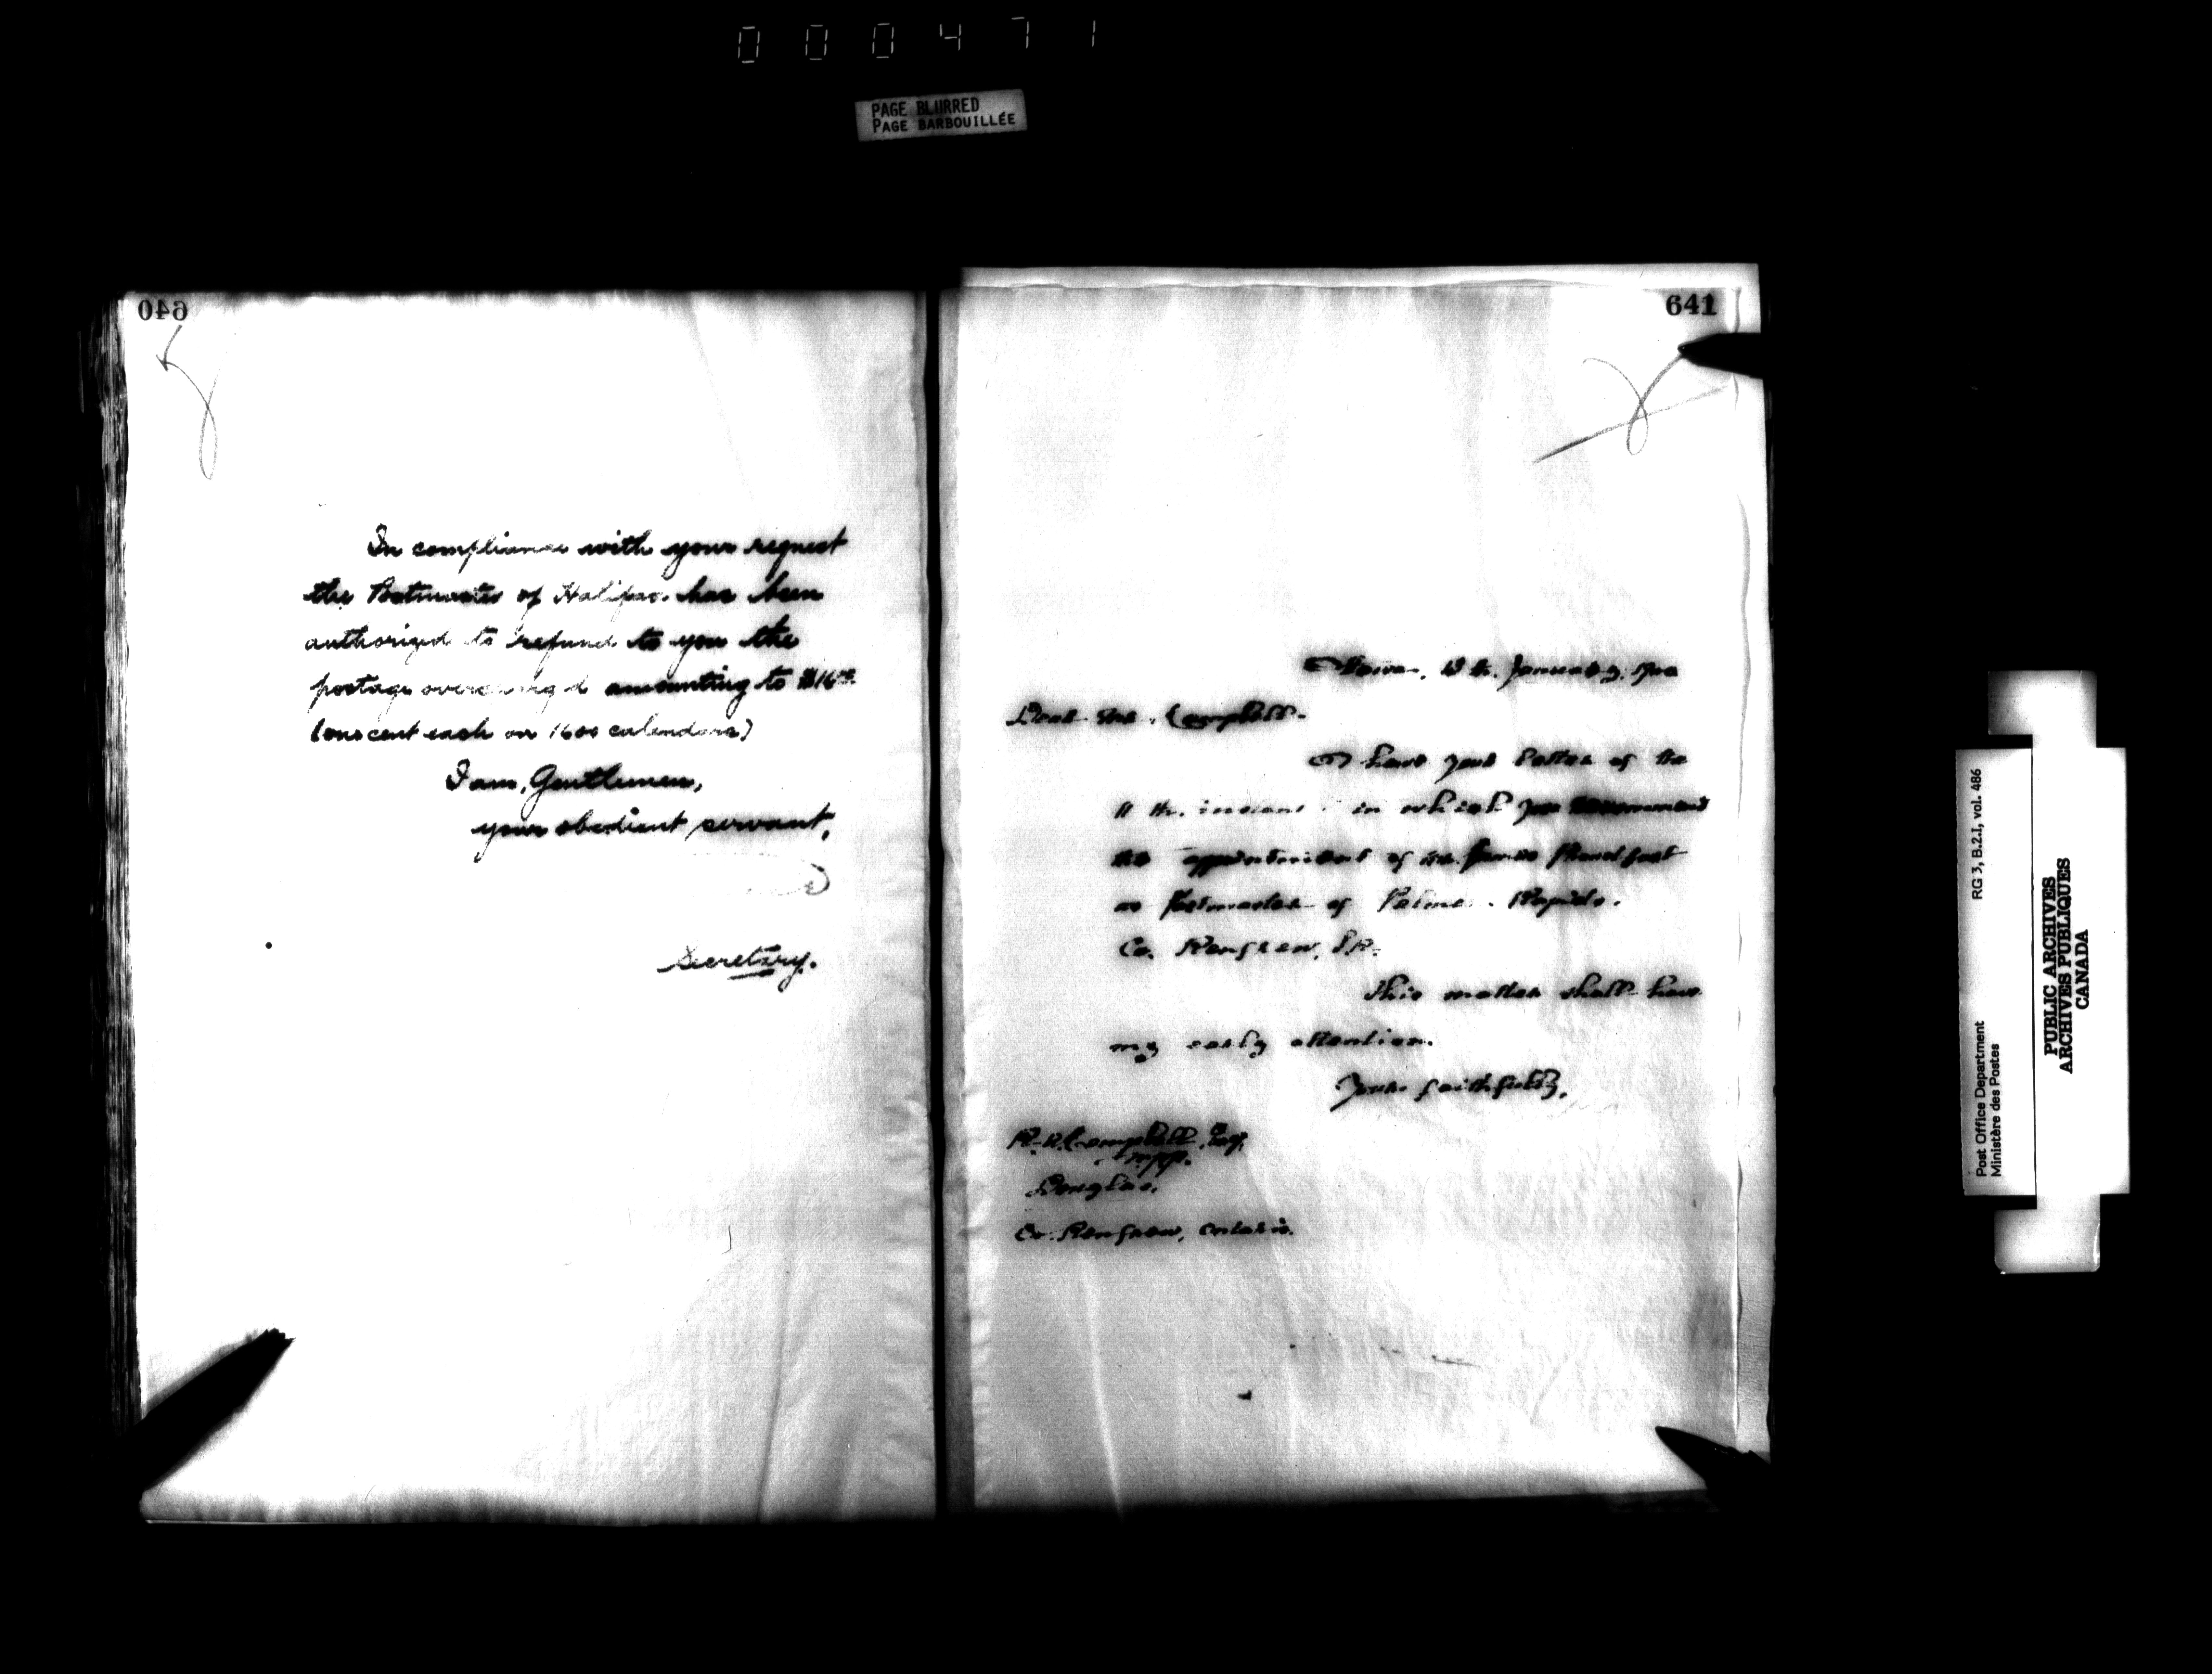 000471
PAGE BLURRED
PAGE BARBOUILLÉE
640
In compliance with your request
the Postmaster of Halifax has been
authorized to refund to you the
postage overcharged amounting to $16.00
(one cent each on 1600 calendars)
I am, Gentlemen,
your obedient servant,
Secretary.
641
Ottawa, January,
Dear Mr. Campbell.
I have your letter of the
11 th. instant in which you recommend
the appointment of Mr. James
as Postmaster of Palmer Rapids.
Co. Renfrew, S.R.
This matter shall have
my early attention.
Yours faithfully,
Campbell, Esq.
M.P.P.
Douglas,
Co. Renfrew, Ontario.
Post Office Department
Ministère des Postes
RG 3, B.2.1, vol. 486
PUBLIC ARCHIVES
ARCHIVES PUBLIQUES
CANADA